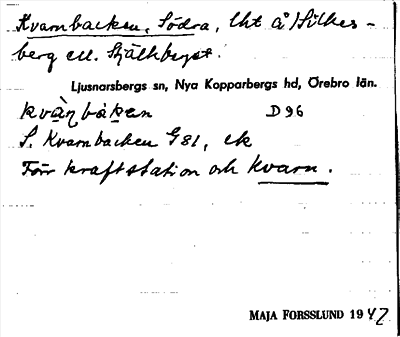 Kvarnbacken, Södra, lht å Silkes-
berg ell. Själkberget.
Ljusnarsbergs sn, Nya Kopparbergs hd, Örebro län.
kvàn̥bàken D 96
S. Kvarnbacken G 81, ek
Förr kraftstation och kvarn.
MAJA FORSSLUND 1942